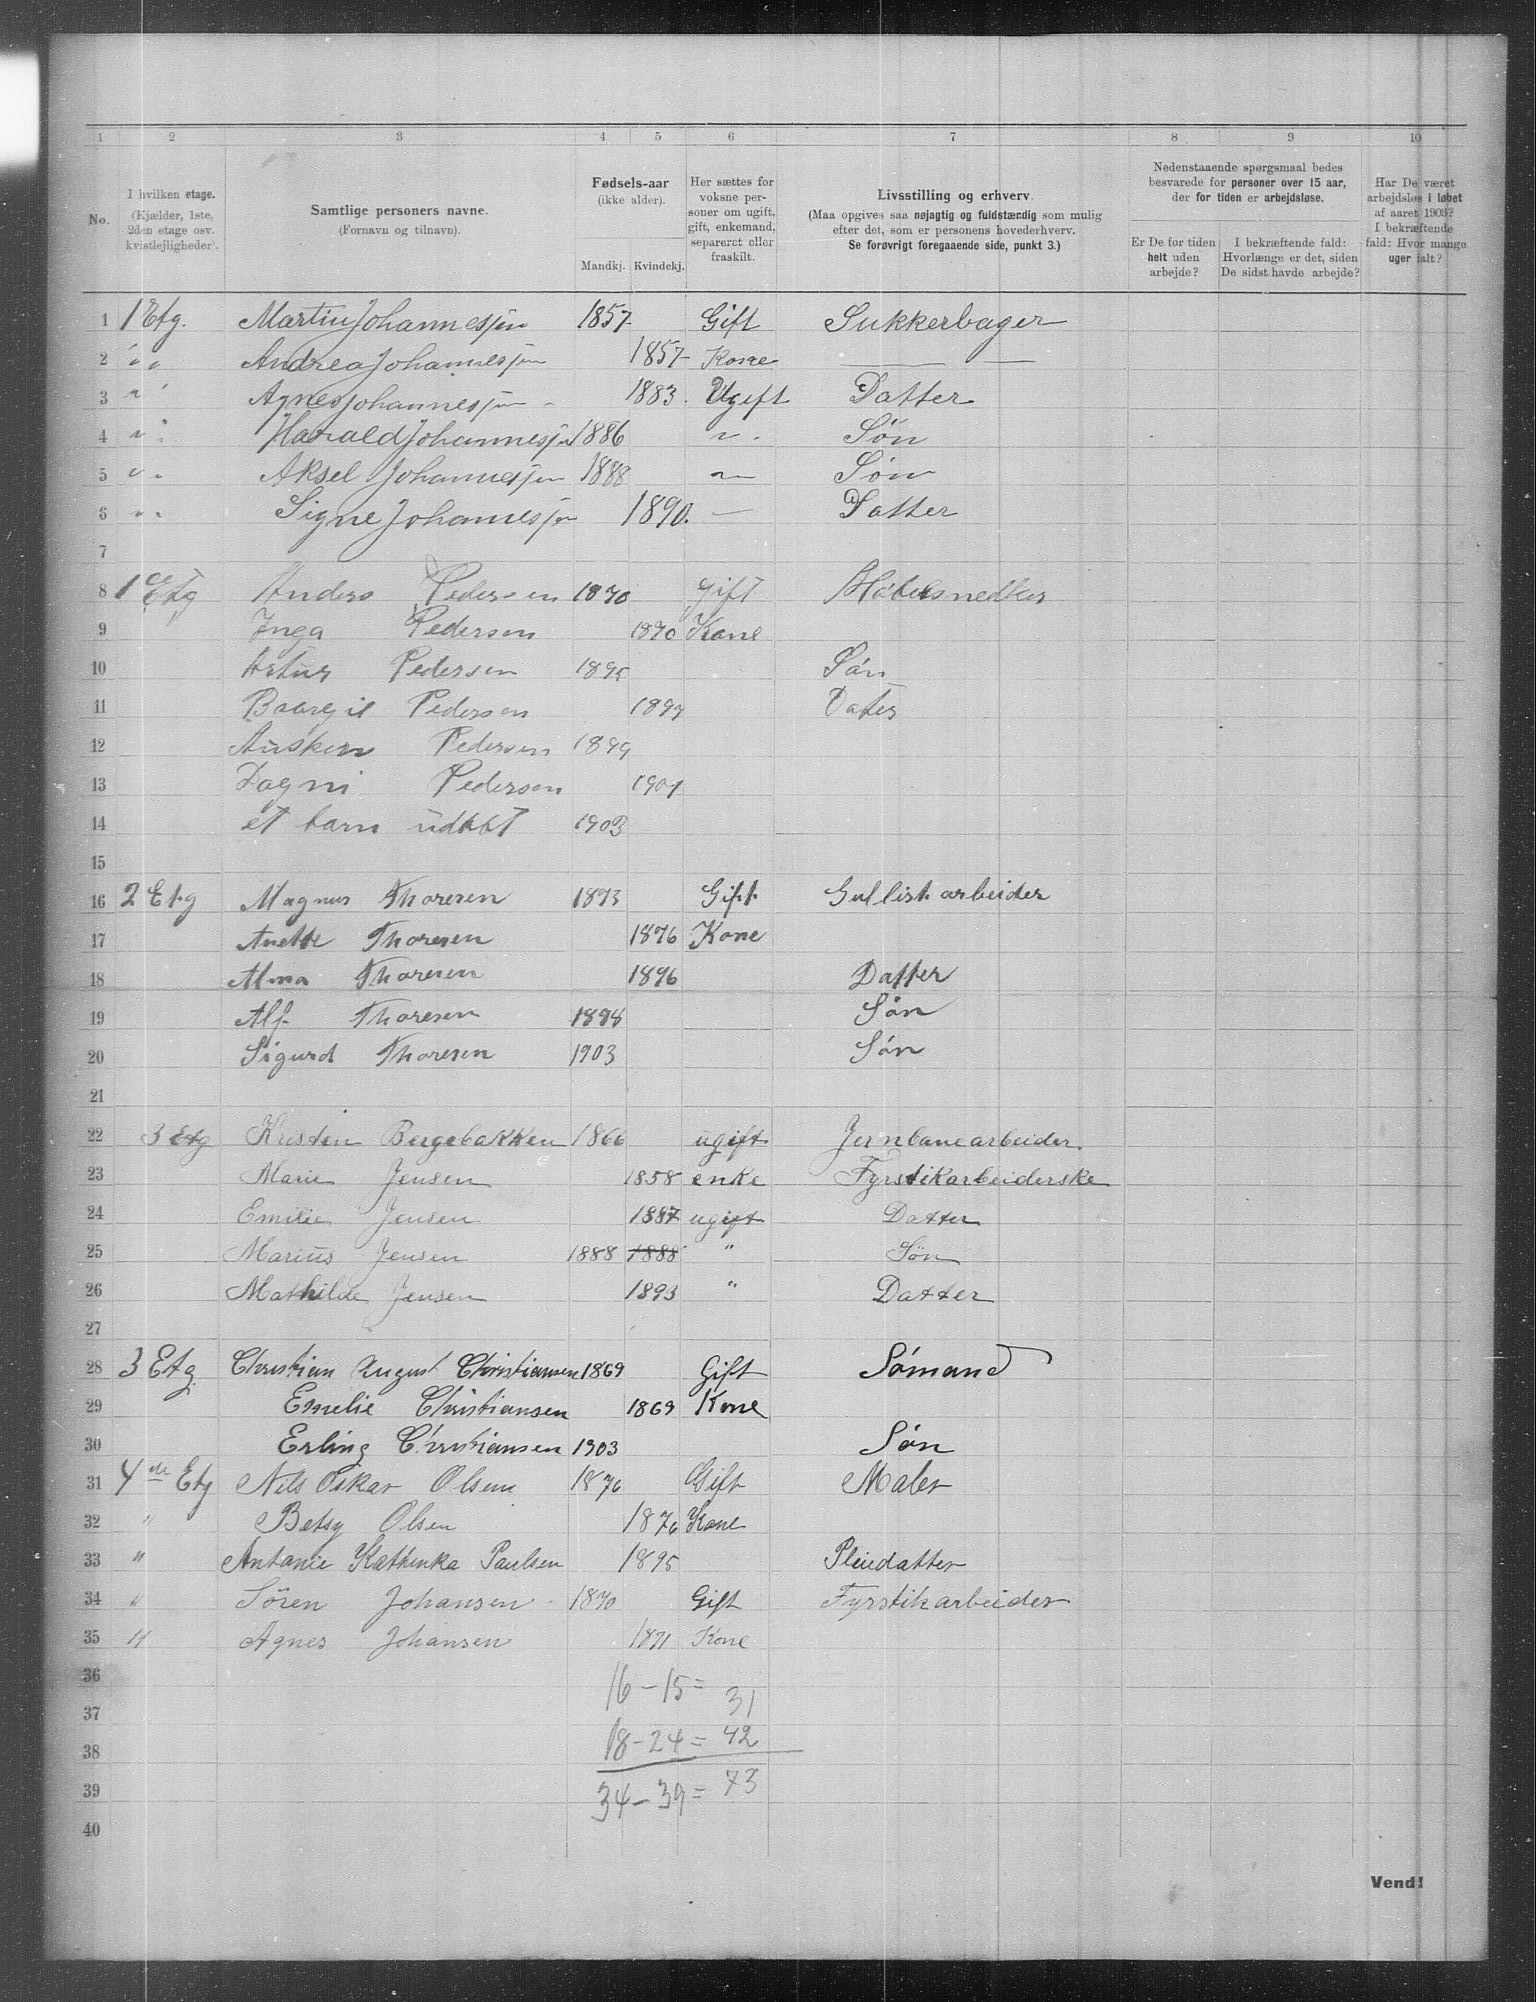 1 2 3 4 5 6 7 8 9 10
No.
I hvilken etage. (Kjælder, 1ste, 2den etage osv. kvistlejligheder).
Samtlige personers navne. (Fornavn og tilnavn).
Fødsels-aar (ikke alder).
Mandkj. Kvindekj.
Her sættes for voksne personer om ugift, gift, enkemand, separeret eller fraskilt.
Livsstilling og erhverv.
(Maa opgives saa nøjagtig og fuldstændig som mulig efter det, som er personens hovederhverv.
Se forøvrigt foregaaende side, punkt 3.)
Nedenstaaende spørgsmaal bedes besvarede for personer over 15 aar, der for tiden er arbejdsløse.
Er De for tiden helt uden arbejde?
I bekræftende fald: Hvorlænge er det, siden De sidst havde arbejde?
Har De været arbejdsløs i løbet af aaret 1903? I bekræftende fald: Hvor mange uger ialt?
1 1 Etg. Martin Johannesjen 1857 Gift Sukkerbager
2 " " Andrea Johannesjen 1857 Kone —
3 " " Agnes Johannesjen 1883. Ugift Datter
4 " " Harald Johannesjen 1886 " Søn
5 " " Aksel Johannesjen 1888 — Søn
6 " " Signe Johannesjen 1890. — Datter
7
8 1 Etg Anders Pedersen 1870 gift Møbelsnedker
9 Inga Pedersen 1870 Kone
10 Artur Pedersen 1895 Søn
11 Pedersen 1897 Dater
12 Pedersen 1899
13 Dagni Pedersen 1901
14 et barn udøbt 1903
15
16 2 Etg Magnus Thoresen 1873 Gift Gullistarbeider
17 Anette Thoresen 1876 Kone
18 Alma Thoresen 1896 Datter
19 Alf Thoresen 1898 Søn
20 Sigurd Thoresen 1903 Søn
21
22 3 Etg Kristen Bergebakken 1866 ugift Jernbanearbeider
23 Marie Jensen 1858 enke Fyrstikarbeiderske
24 Emilie Jensen 1887 ugift Datter
25 Marius Jensen 1888 1888 " Søn
26 Mathilde Jensen 1893 " Datter
27
28 3 Etg Christian August Christiansen 1869 Gift Sømand
29 Emelie Christiansen 1869 Kone
30 Erling Christiansen 1903 Søn
31 4de Etg Nils Oskar Olsen 1876 Gift Maler
32 " Betsy Olsen 1876 Kone
33 " Antonie Kathinka Paulsen 1895 Pleiedatter
34 " Sören Johansen 1870 Gift Fyrstikarbeider
35 " Agnes Johansen 1871 Kone
36 16 – 15 = 31
37
38 18 – 24 = 42
39 34 – 39 = 73
40
Vend!